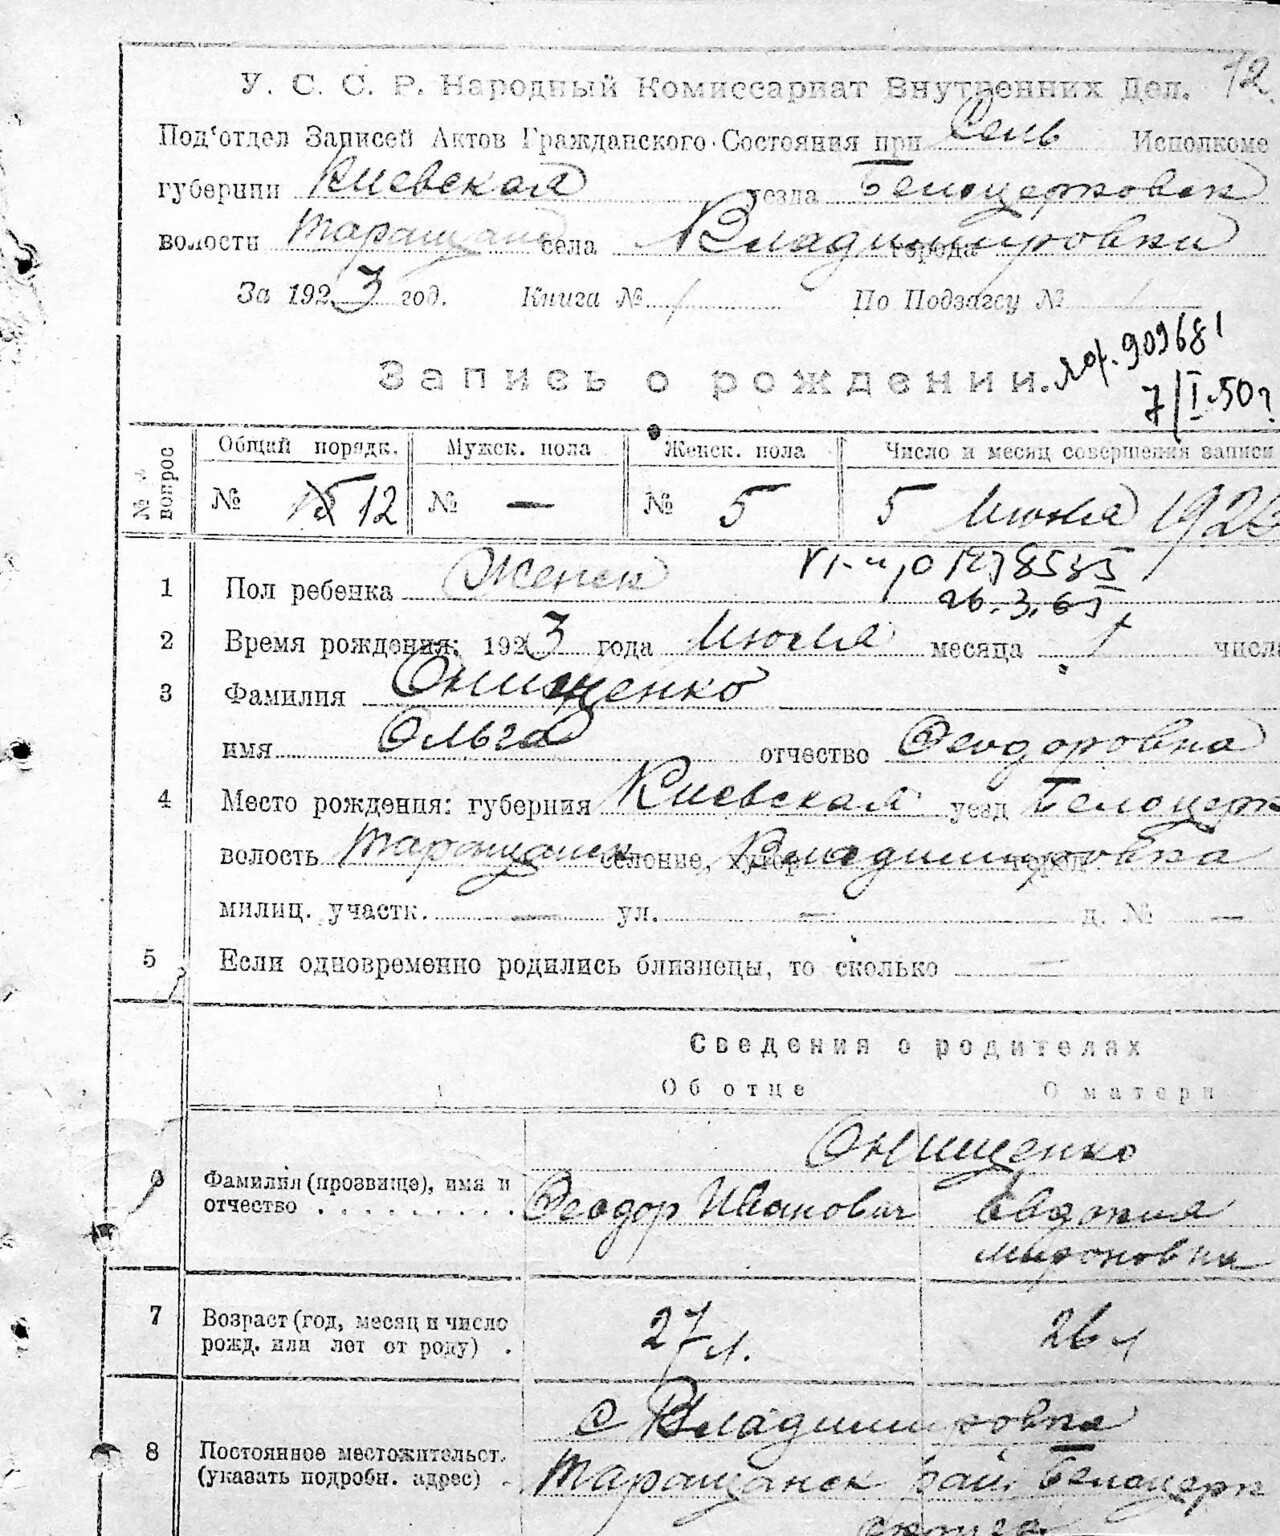 12.
У. С. С. Р. Народный Комиссариат Внутренних Дел.
Под'отдел Записей Актов Гражданского Состояния при Сель Исполкоме
губернии Киевская уезда Белоцерковск
волости Таращанс села Владимировки города
За 1923 год. Книга № 1 По Подзагсу № 1
Запись о рождении.
909681
7/I.50г
№№ вопрос
Общий порядк. Мужск. пола Женск. пола Число и месяц совершения записи
№ 12 № — № 5 5 Июня 192
1 Пол ребенка Женск
26.3.65
2 Время рождения: 1923 года Июня месяца 1 числа
3 Фамилия Онищенко
имя Ольга отчество Феодоровна
4 Место рождения: губерния Киевская уезд Белоцерк
волость Таращанск селение, хутор Владимировка город
милиц. участк. — ул. — д. № —
5 Если одновременно родились близнецы, то сколько —
Сведения о родителях
Об отце О матери
Онищенко
6 Фамилия (прозвище), имя и отчество . . . . . . . . . Феодор Иванович Євдокия
Мироновна
7 Возраст (год, месяц и число
рожд. или лет от роду) . 27 л. 26 л
с Владимировка
8 Постоянное местожительст.
(указать подробн. адрес) . Таращанск рай. Белоцерк
округа